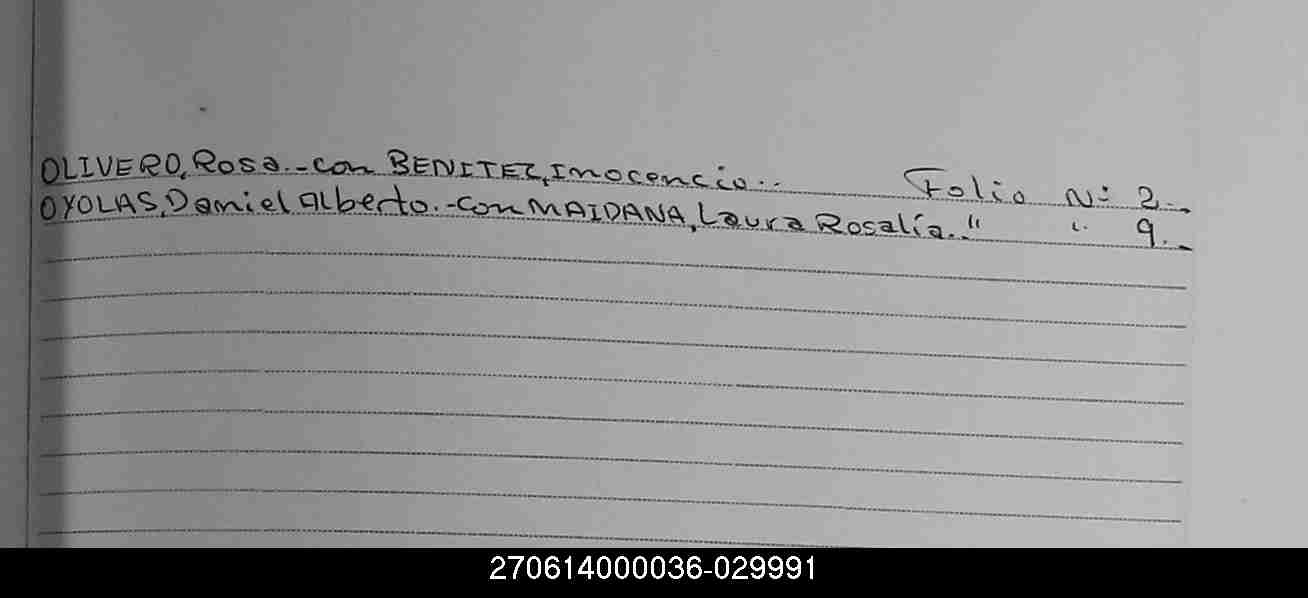 OLIVERO, Rosa.-con BENITEZ, Inocencio.. Folio N: 2.-
OYOLAS, Daniel Alberto.-con MAIDANA, Laura Rosalía.. " " 9.-
270614000036-029991